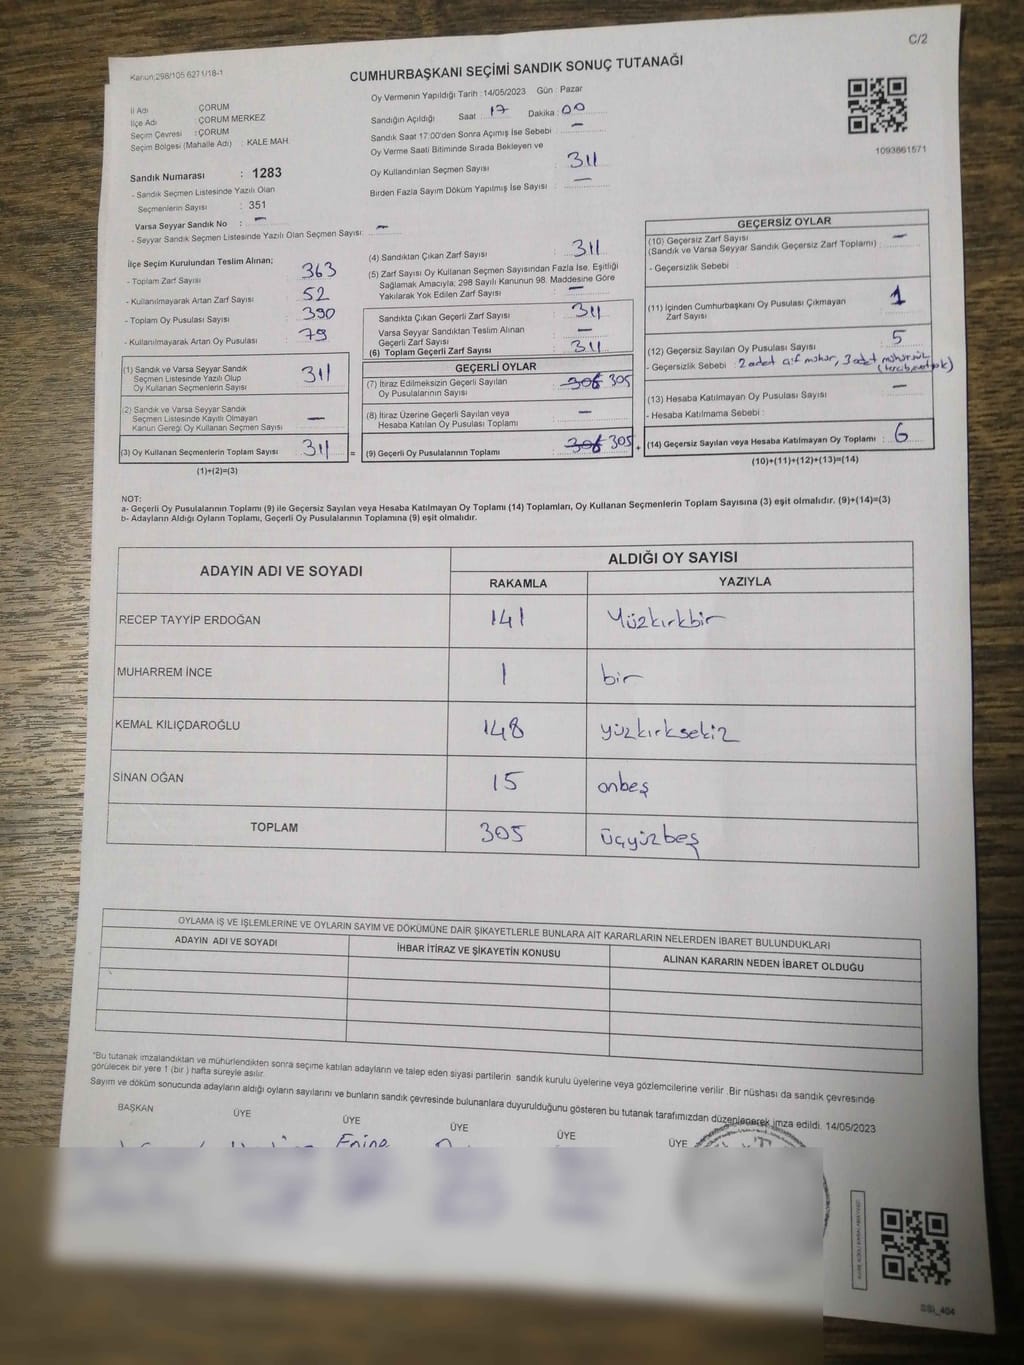 C/2
Kanun:298/105 6271/18-1
CUMHURBAŞKANI SEÇİMİ SANDIK SONUÇ TUTANAĞI
İl Adı ÇORUM
İlçe Adı ÇORUM MERKEZ
Seçim Çevresi : ÇORUM
Seçim Bölgesi (Mahalle Adı) : KALE MAH.
Oy Vermenin Yapıldığı Tarih : 14/05/2023 Gün : Pazar
Sandığın Açıldığı Saat : 17 Dakika : 00
Sandık Saat 17:00'den Sonra Açımış İse Sebebi : —
Oy Verme Saati Bitiminde Sırada Bekleyen ve
Oy Kullandırılan Seçmen Sayısı : 311
Birden Fazla Sayım Döküm Yapılmış İse Sayısı : —
1093861571
Sandık Numarası : 1283
- Sandık Seçmen Listesinde Yazılı Olan
Seçmenlerin Sayısı : 351
Varsa Seyyar Sandık No : —
- Seyyar Sandık Seçmen Listesinde Yazılı Olan Seçmen Sayısı: —
İlçe Seçim Kurulundan Teslim Alınan;
- Toplam Zarf Sayısı 363
- Kullanılmayarak Artan Zarf Sayısı 52
- Toplam Oy Pusulası Sayısı 390
- Kullanılmayarak Artan Oy Pusulası 79
(1) Sandık ve Varsa Seyyar Sandık
Seçmen Listesinde Yazılı Olup
Oy Kullanan Seçmenlerin Sayısı 311
(2) Sandık ve Varsa Seyyar Sandık
Seçmen Listesinde Kayıtlı Olmayan
Kanun Gereği Oy Kullanan Seçmen Sayısı —
(3) Oy Kullanan Seçmenlerin Toplam Sayısı 311 =
(1)+(2)=(3)
(4) Sandıktan Çıkan Zarf Sayısı : 311
(5) Zarf Sayısı Oy Kullanan Seçmen Sayısından Fazla İse, Eşitliği
Sağlamak Amacıyla; 298 Sayılı Kanunun 98. Maddesine Göre
Yakılarak Yok Edilen Zarf Sayısı : —
Sandıkta Çıkan Geçerli Zarf Sayısı : 311
Varsa Seyyar Sandıktan Teslim Alınan
Geçerli Zarf Sayısı : —
(6) Toplam Geçerli Zarf Sayısı : 311
GEÇERLİ OYLAR
(7) İtiraz Edilmeksizin Geçerli Sayılan
Oy Pusulalarının Sayısı : 306 305
(8) İtiraz Üzerine Geçerli Sayılan veya
Hesaba Katılan Oy Pusulası Toplamı : —
(9) Geçerli Oy Pusulalarının Toplamı : 306 305 +
GEÇERSİZ OYLAR
(10) Geçersiz Zarf Sayısı
(Sandık ve Varsa Seyyar Sandık Geçersiz Zarf Toplamı) : —
- Geçersizlik Sebebi :
(11) İçinden Cumhurbaşkanı Oy Pusulası Çıkmayan
Zarf Sayısı : 1
(12) Geçersiz Sayılan Oy Pusulası Sayısı : 5
- Geçersizlik Sebebi : 2 adet çift mühür, 3 adet mühürsüz
(13) Hesaba Katılmayan Oy Pusulası Sayısı : —
- Hesaba Katılmama Sebebi :
(14) Geçersiz Sayılan veya Hesaba Katılmayan Oy Toplamı : 6
(10)+(11)+(12)+(13)=(14)
NOT:
a- Geçerli Oy Pusulalarının Toplamı (9) ile Geçersiz Sayılan veya Hesaba Katılmayan Oy Toplamı (14) Toplamları, Oy Kullanan Seçmenlerin Toplam Sayısına (3) eşit olmalıdır. (9)+(14)=(3)
b- Adayların Aldığı Oyların Toplamı, Geçerli Oy Pusulalarının Toplamına (9) eşit olmalıdır.
ADAYIN ADI VE SOYADI ALDIĞI OY SAYISI
RAKAMLA YAZIYLA
RECEP TAYYİP ERDOĞAN 141 Yüzkırkbir
MUHARREM İNCE 1 bir
KEMAL KILIÇDAROĞLU 148 yüzkırksekiz
SİNAN OĞAN 15 onbeş
TOPLAM 305 üçyüzbeş
OYLAMA İŞ VE İŞLEMLERİNE VE OYLARIN SAYIM VE DÖKÜMÜNE DAİR ŞİKAYETLERLE BUNLARA AİT KARARLARIN NELERDEN İBARET BULUNDUKLARI
ADAYIN ADI VE SOYADI İHBAR İTİRAZ VE ŞİKAYETİN KONUSU ALINAN KARARIN NEDEN İBARET OLDUĞU
"Bu tutanak imzalandıktan ve mühürlendikten sonra seçime katılan adayların ve talep eden siyasi partilerin sandık kurulu üyelerine veya gözlemcilerine verilir. Bir nüshası da sandık çevresinde
görülecek bir yere 1 (bir ) hafta süreyle asılır.
Sayım ve döküm sonucunda adayların aldığı oyların sayılarını ve bunların sandık çevresinde bulunanlara duyurulduğunu gösteren bu tutanak tarafımızdan düzenlenerek imza edildi. 14/05/2023
BAŞKAN ÜYE ÜYE ÜYE ÜYE ÜYE
SSİ_404